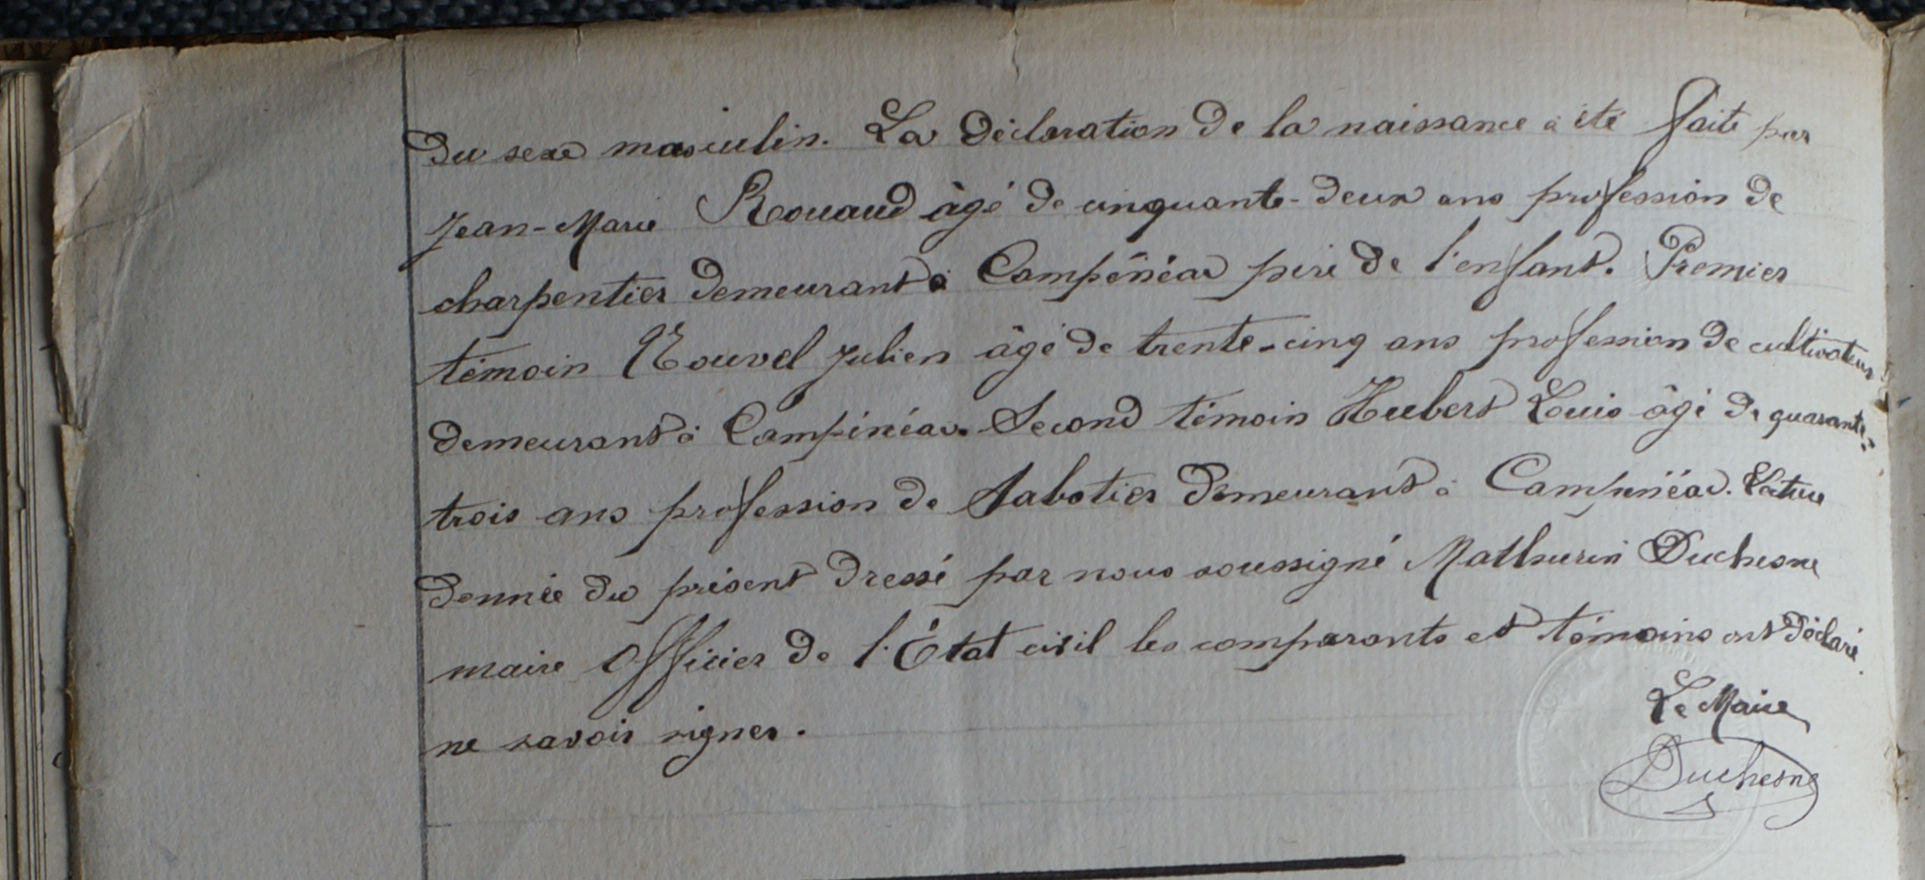 du sexe masculin. La déclaration de la naissance a été faite par
Jean-Marie Rouaud âgé de cinquante-deux ans profession de
charpentier demeurant à Campénéac père de l'enfant. Premier
témoin Nouvel Julien âgé de trente-cinq ans profession de cultivateur
demeurant à Campénéac. Second témoin Hubert Louis âgé de quarante-
trois ans profession de Sabotier demeurant à Campénéac. Lecture
donnée du présent dressé par nous soussigné Mathurin Duchesne
maire Officier de l'État civil les comparants et témoins ont déclaré
ne savoir signer.
Le Maire
Duchesne